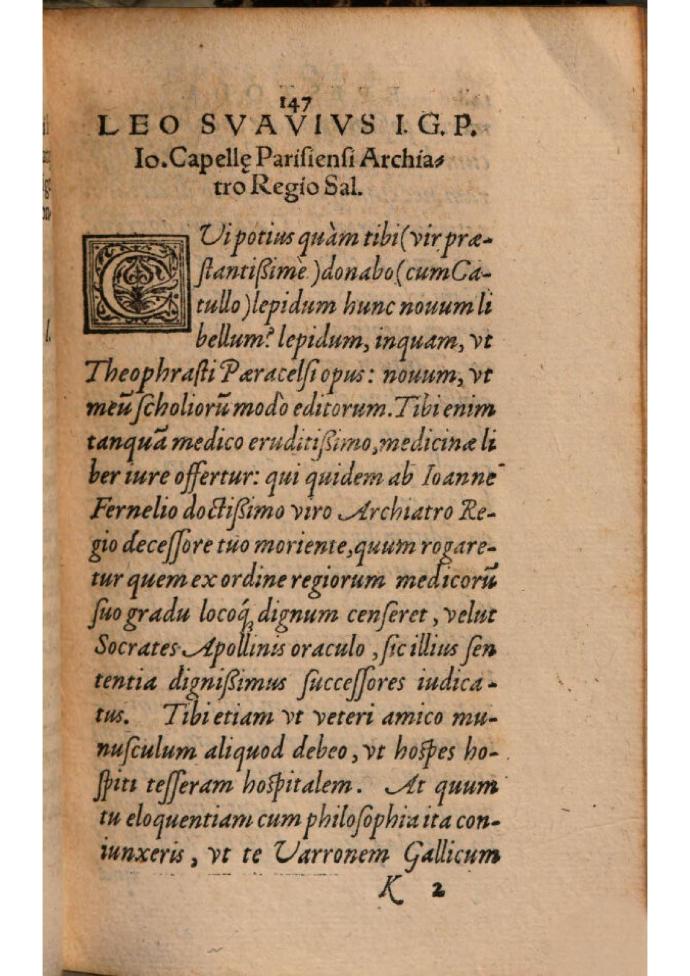 147
LEO SVAVIVS I. G. P.
Io. Capellę Parisiensi Archia-
tro Regio Sal.
CVi potius quàm tibi (vir præ-
stantißime) donabo (cum Ca-
tullo) lepidum hunc nouum li
bellum? lepidum, inquam, vt
Theophrasti Paracelsi opus: nouum, vt
meũ scholiorũ modò editorum. Tibi enim
tanquã medico eruditißimo, medicinæ li
ber iure offertur: qui quidem ab Ioanne
Fernelio doctißimo viro Archiatro Re-
gio decessore tuo moriente, quum rogare-
tur quem ex ordine regiorum medicorũ
suo gradu locoq́ꝫ dignum censeret, velut
Socrates Apollinis oraculo, sic illius sen
tentia dignißimus successores iudica-
tus. Tibi etiam vt veteri amico mu-
nusculum aliquod debeo, vt hospes ho-
spiti tesseram hospitalem. At quum
tu eloquentiam cum philosophia ita con-
iunxeris, vt te Varronem Gallicum
K 2